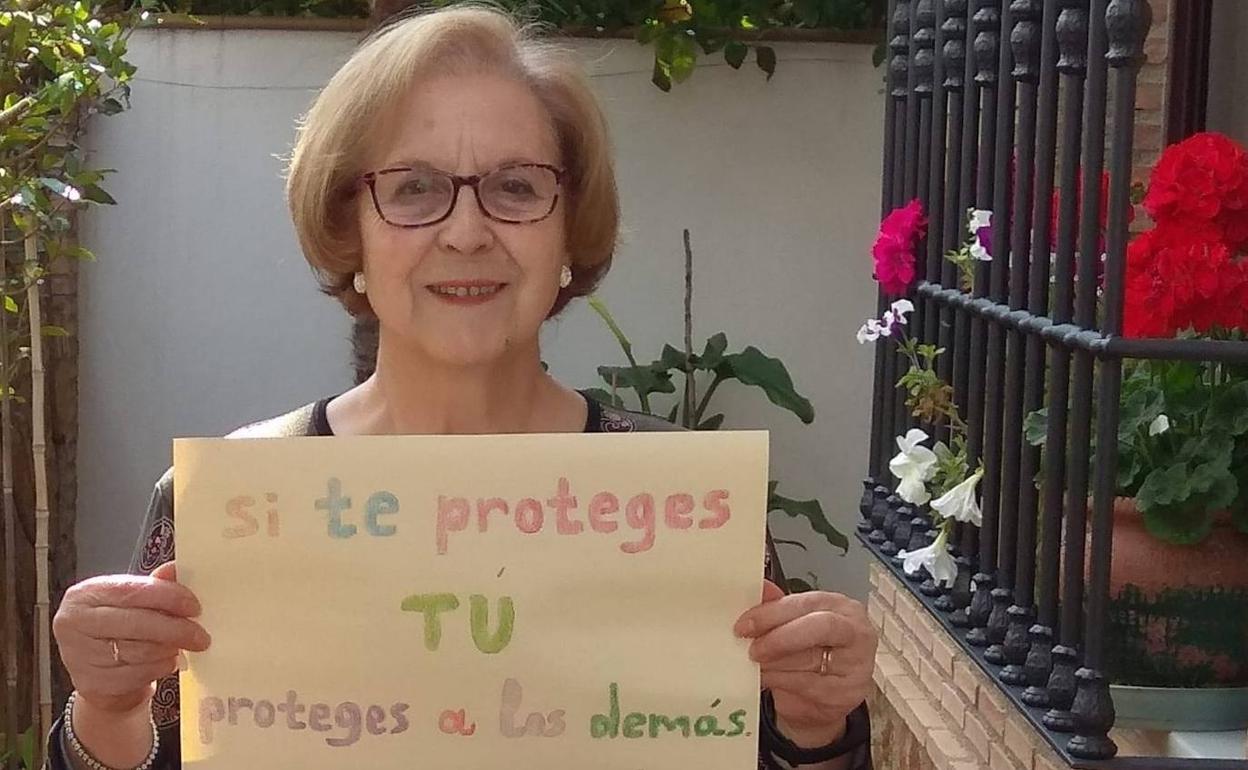 si te proteges
TÚ
proteges a los demás.